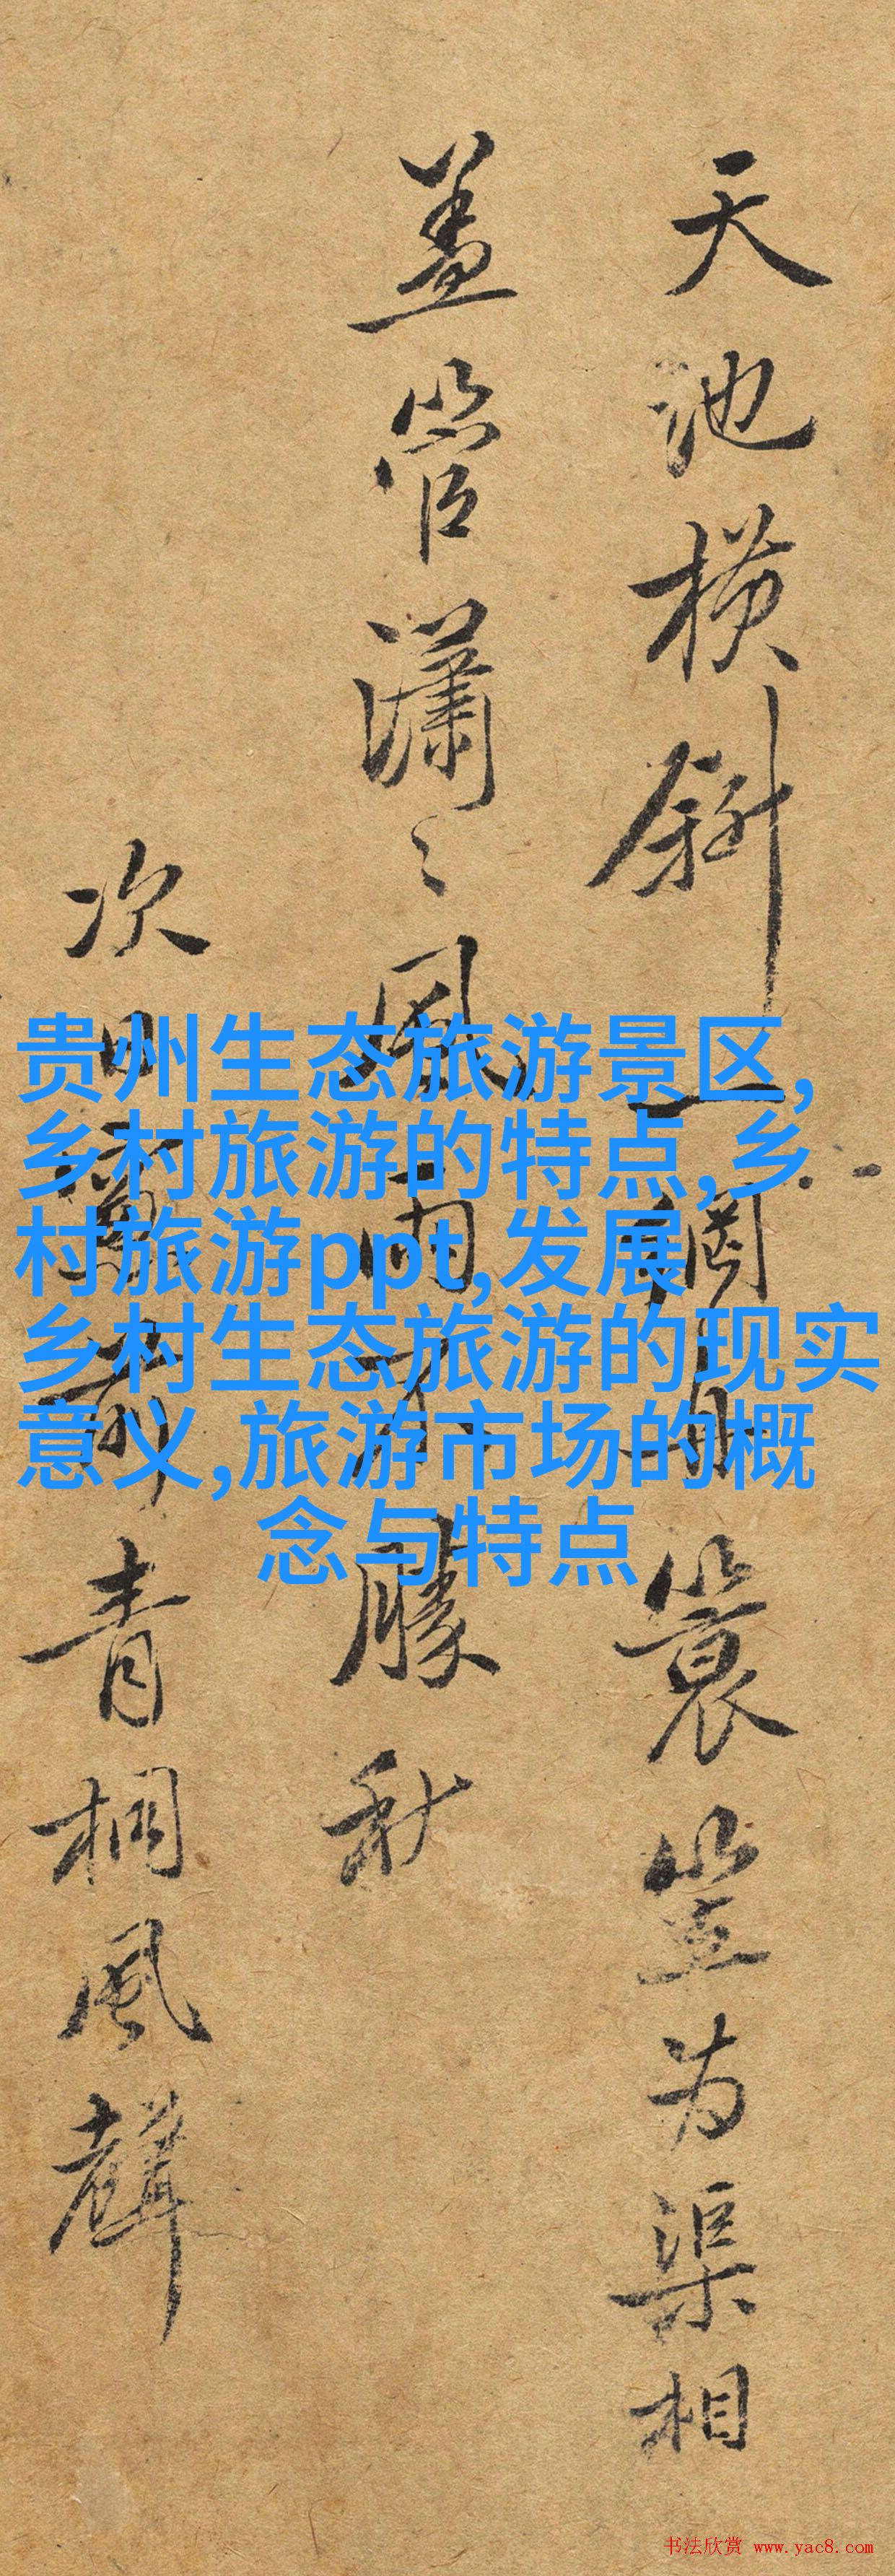 天池橫斜一個舟簑笠为渠相
盖管瀟〻風雨不勝秋
次日
青桐風聲
贵州生态旅游景区,
乡村旅游的特点,乡
村旅游ppt,发展
乡村生态旅游的现实
意义,旅游市场的概
念与特点
书法欣赏 www.yac8.com